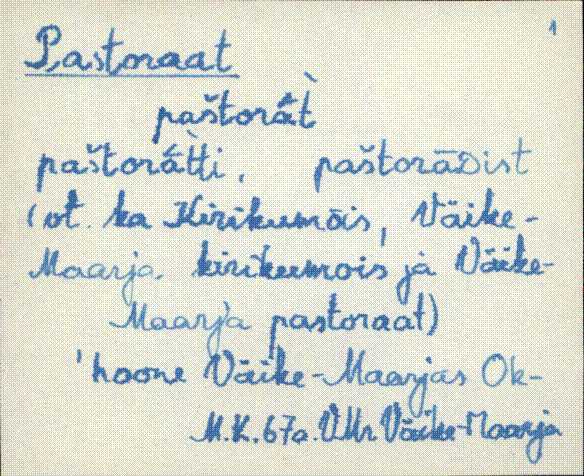 1
Pastoraat
paštorát̀
paštorát̀ti, paštorāDist
(vt. ka Kirikumõis, Väike-
Maarja kirikumõis ja Väike-
Maarja pastoraat)
'hoone Väike-Maarjas Ok-
M.K. 67a. VMr Väike-Maarja